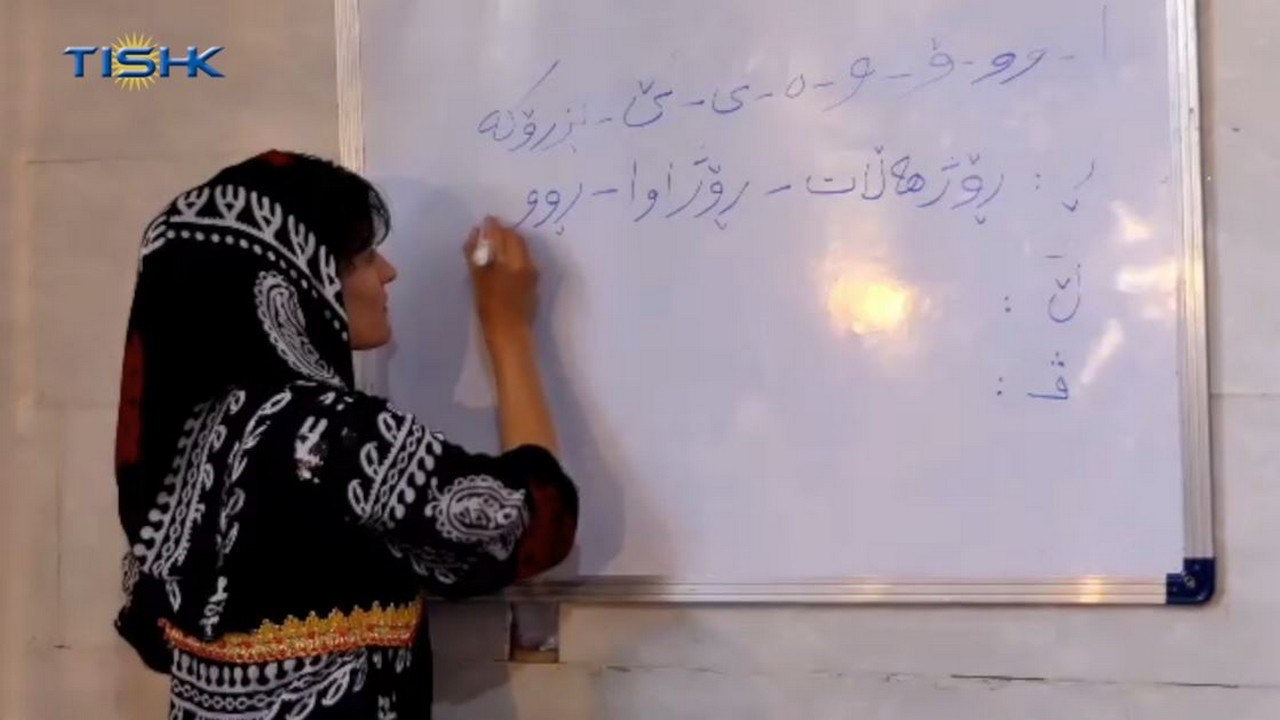 TISHK
ا - وو - ۆ - و - ە - ی - ێ - بزرۆکە
ڕ : ڕۆژهەڵات - ڕۆژاوا - ڕوو
ڵ :
: